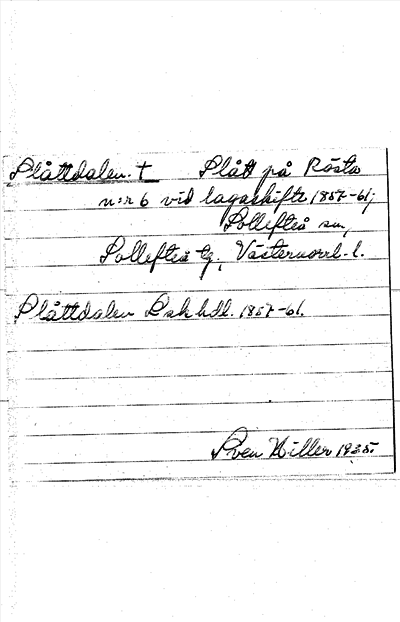 Slåttdalen. † Slått på Rösta
n:r 6 vid lagaskifte 1857-61;
Sollefteå sn,
Sollefteå tg, Västernorrl. l.
Slåttdalen Lskhdl. 1857-61.
Sven Hiller 1935.